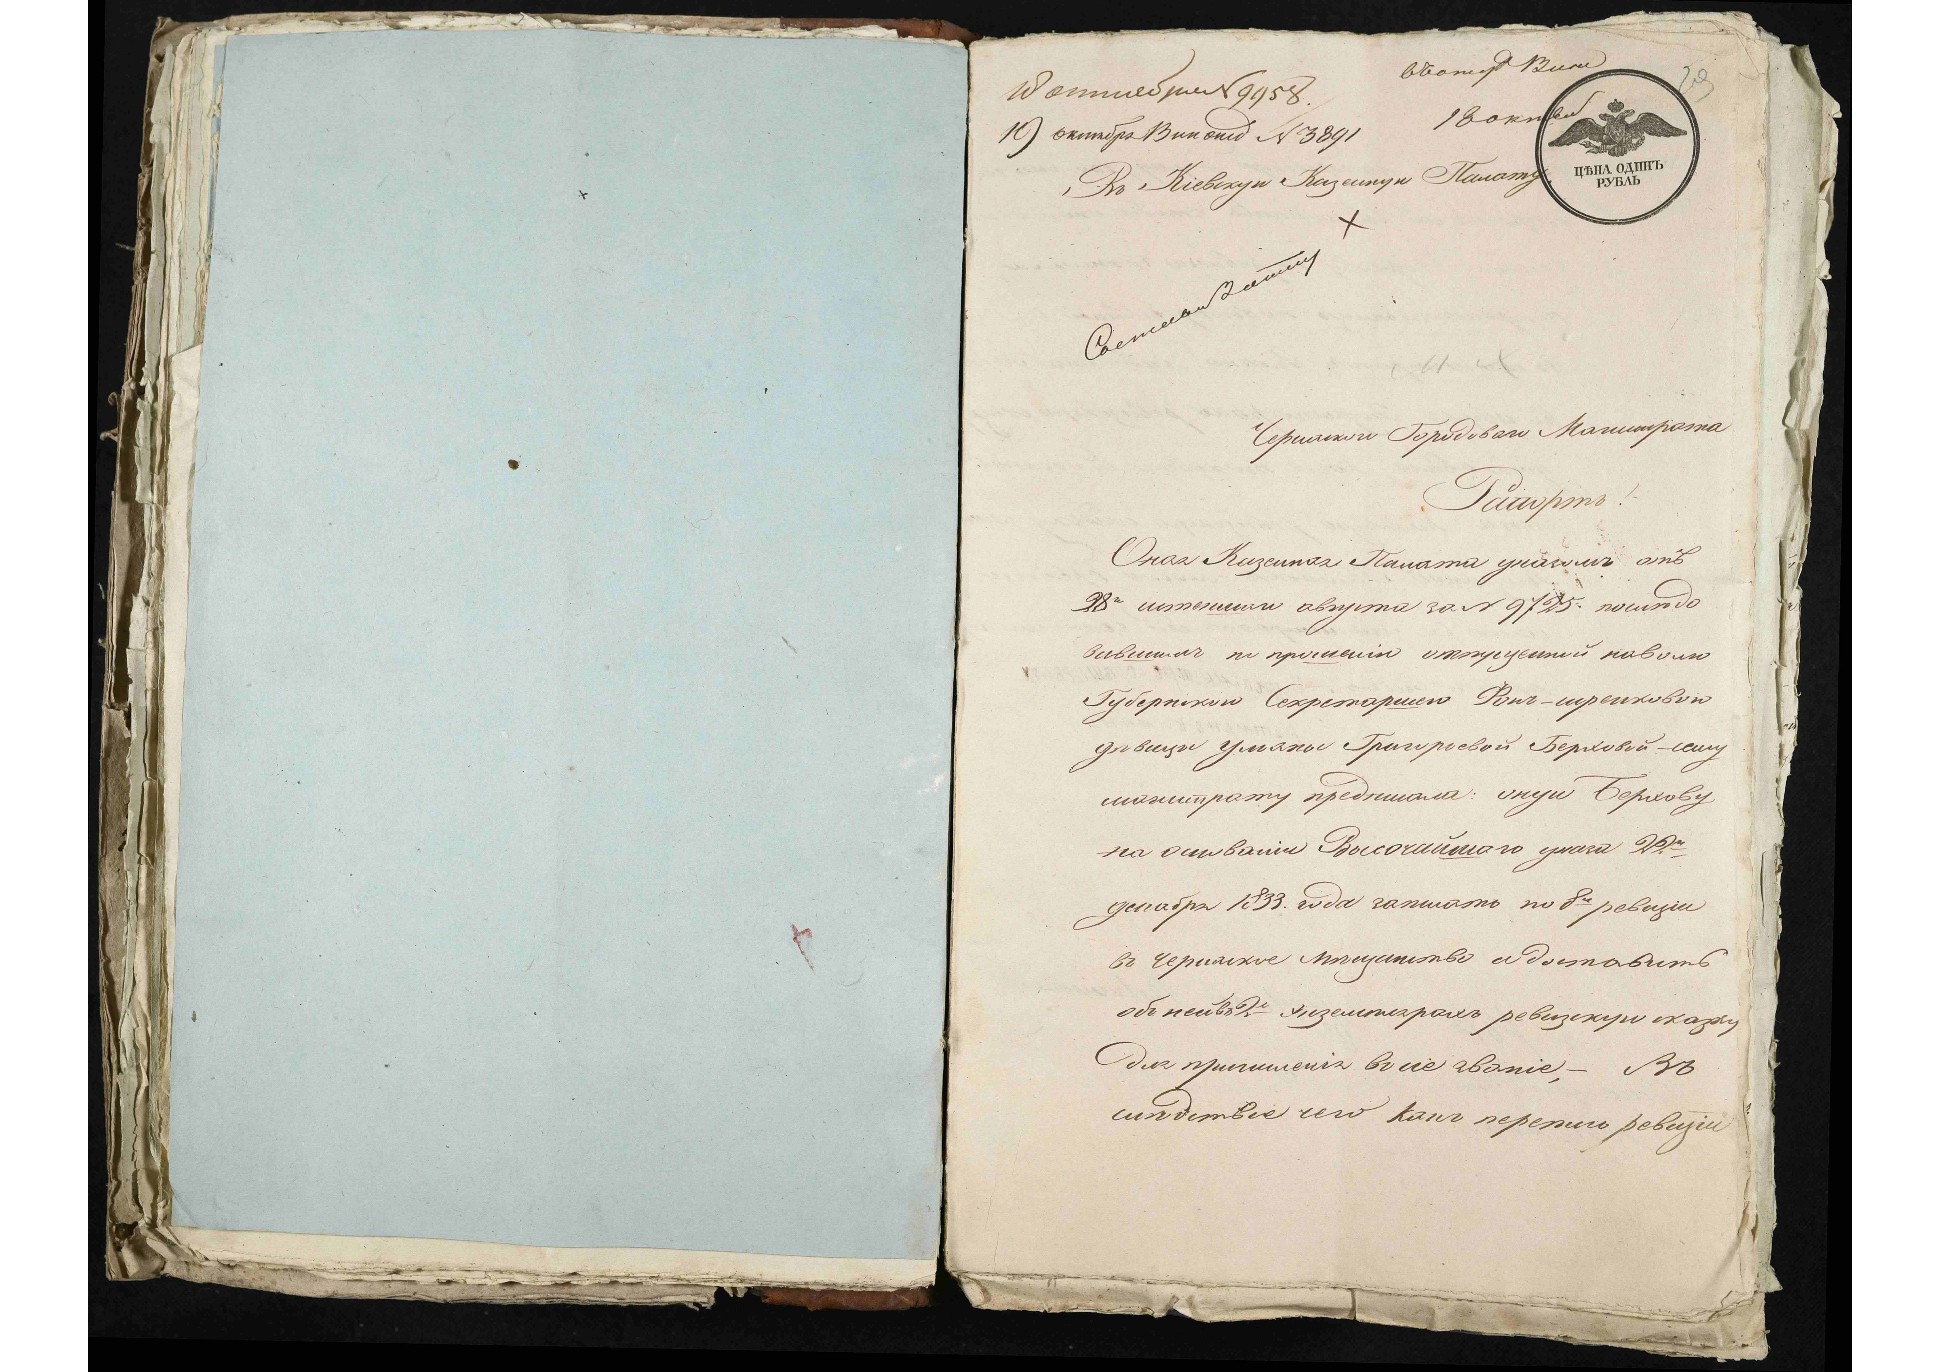 18 октября N 9958.
19 октября Вин отд N 3891
18 октяб
29
ЦѢНА ОДИНЪ
РУБЛЬ
Въ Кіевскую Казенную Палату
Черкаского Городоваго Магистрата
Рапортъ!
Оная Казенная Палата указомъ отъ
28го истекшаго августа за N 9725. последо
вавшимъ по прошенію отпущенной наволю
Губернскою Секретаршею Фонъ-
дѣвицы Ульяны Григорьевой Берховой - сему
магистрату предписала: оную Берхову
на основаніи Высочайшаго указа 22го
декабря 1833. года записать по 8й ревизіи
въ черкаское мѣщанство и доставить
объ ней въ 2хъ экземплярахъ ревизскую сказку
для причисленія въ сіе званіе, - Въ
слѣдствіе чего какъ перепись ревизіи